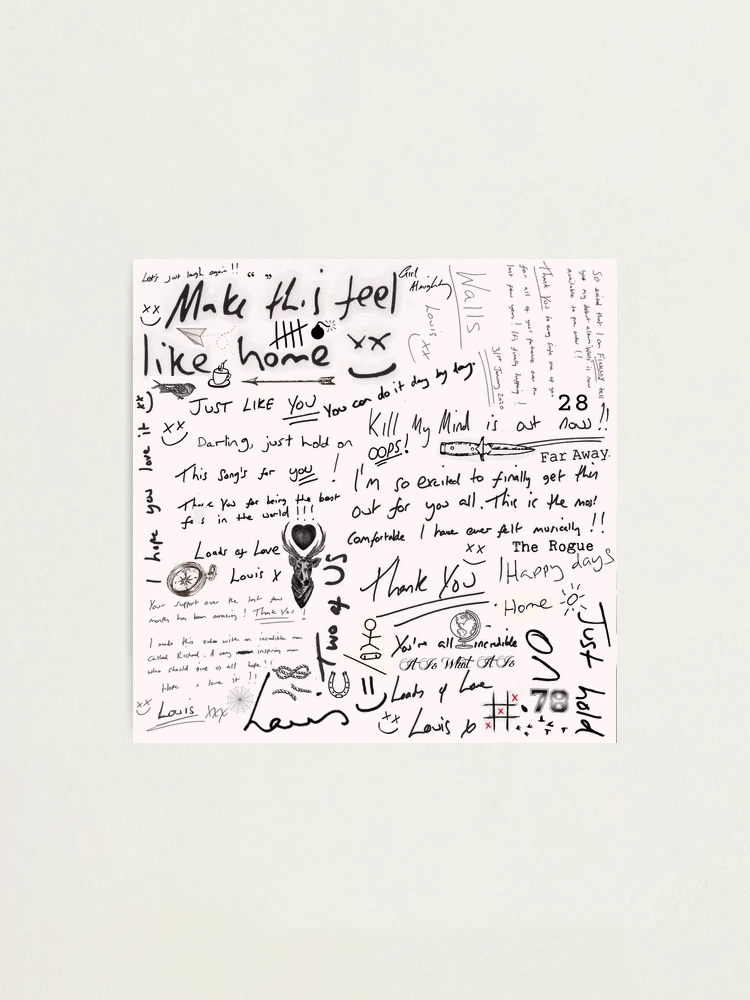 Let's just laugh again!!
“ ”
Make this feel
like home
Girl
Almighty
Walls
Louis xx
31st January 2020
Thank you to every single one of you
for all of your patience over the
last few years! It's finally happening!
So excited that I am FINALLY
my debut album Walls is now
available to pre order!!
JUST LIKE YOU
You can do it day by day.
28
Kill My Mind is out now!!
OOPS!
Far Away.
Darling, just hold on
This song's for you!
I'm so excited to finally get this
out for you all. This is the most
comfortable I have ever felt musically!!
Thank You for being the best
in the world!!!
I hope you love it xx
Loads of Love
Louis X
The Rogue
Thank You
Happy days
Home
Your support over the last few
months has been amazing! Thank You!
Two of Us
I made this video with an incredible man
called Richard. A very inspiring man
who should give us all hope!!
Hope u love it!!
You're all incredible
It Is What It Is
Loads of Love
Just hold
on
78
Louis xxx
Louis
Louis x